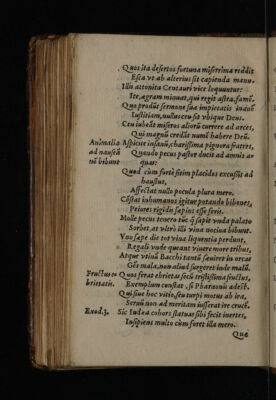 Quos ita desertos fortuna miserrima reddit
Esca vt ab alterius sit capienda manu.
Illi attonita Centauri vice loquuntur:
Ite, agram niquat, qui regit astra, famē.
Quos produnt sermone sua impietatis
Iustitiam, nullus ceu sit vbique Deus.
Ceu iubeāt miseros aliorū currere ad arces,
Qui magnū credūt numē habere Deū.
Animalia Aspicite insanū, charissima pignora fratres,
ad nauseā Quando pecus pastor ducit ad amnis
nō bibunt quas:
Quod cùm fortè sitim placidos excussit ad
haustus,
Affectat nullo pocula plura mero.
Cōstat inhumanos igitur potando bibones,
Peiores rigidis sapius esse feris.
Molle pecus tenero tūc sapit vnda palato
Sorbet, at vltrò illi vina nociua bibunt.
Vno sape die tot vina liquentia perdunt,
Regali vnde queant viuere more tribus,
Atque vtinā Bacchi tantū sauiret in orcas
Gēs mala, non aliud surgeret inde malū.
Fructus e- Quos ferat ebrietas secū tristissima fructus,
brietatis. Exemplum constat, si Pharaonis adest.
Qui siue hoc vitio, seu turpi motus ab ira,
Seruū non ad meritam iusserat ire crucē.
Exod.3. Sic Iudea cohors statuas sibi fecit inertes,
Insipiens multo cùm foret illa mero.
Quæ